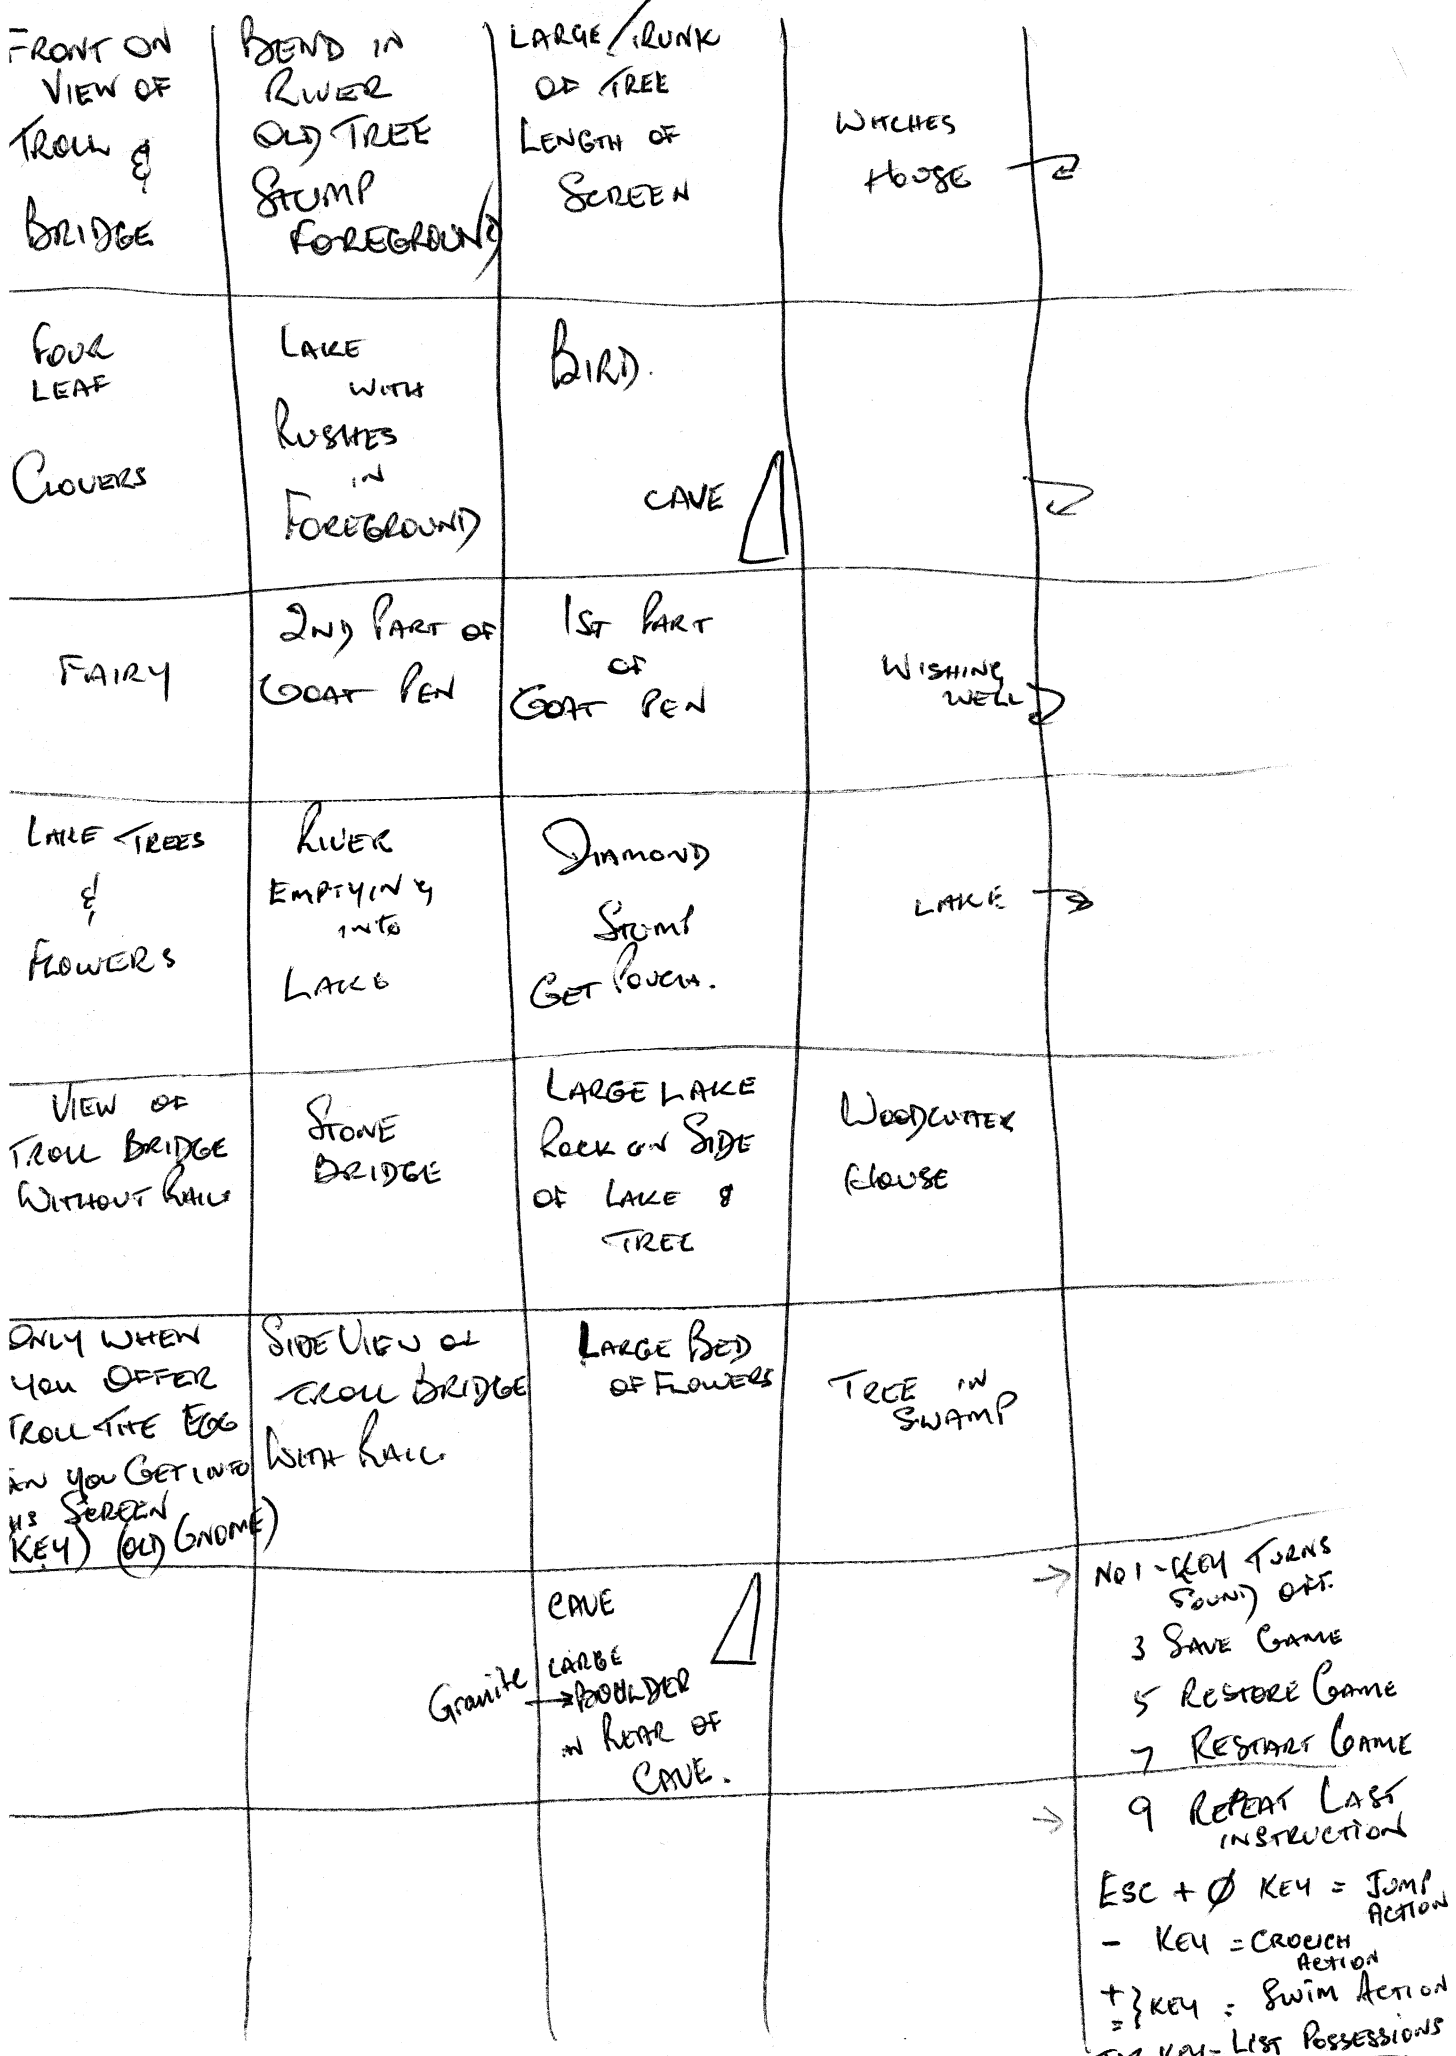 FRONT ON
VIEW OF
TROLL &
BRIDGE
BEND IN
RIVER
OLD TREE
STUMP
FOREGROUND
LARGE TRUNK
OF TREE
LENGTH OF
SCREEN
WITCHES
HOUSE
FOUR
LEAF
CLOVERS
LAKE
WITH
RUSHES
IN
FOREGROUND
BIRD.
CAVE
FAIRY
2ND PART OF
GOAT PEN
1ST PART
OF
GOAT PEN
WISHING
WELL
LAKE TREES
&
FLOWERS
RIVER
EMPTYING
INTO
LAKE
DIAMOND
STUMP
GET POUCH.
LAKE
VIEW OF
TROLL BRIDGE
WITHOUT RAIL
STONE
BRIDGE
LARGE LAKE
ROCK ON SIDE
OF LAKE &
TREE
WOODCUTTER
HOUSE
ONLY WHEN
YOU OFFER
TROLL THE EGG
AN YOU GET INTO
HS SCREEN
KEY) (OLD GNOME)
SIDE VIEW OF
TROLL BRIDGE
WITH RAIL.
LARGE BED
OF FLOWERS
TREE IN
SWAMP
CAVE
LARGE
Granite → BOULDER
IN REAR OF
CAVE.
→ NO 1 - KEY TURNS
SOUND OFF.
3 SAVE GAME
5 RESTORE GAME
7 RESTART GAME
→ 9 REPEAT LAST
INSTRUCTION
ESC + Ø KEY = JUMP
ACTION
- KEY = CROUCH
ACTION
+
= } KEY = SWIM ACTION
KEY - LIST POSSESSIONS